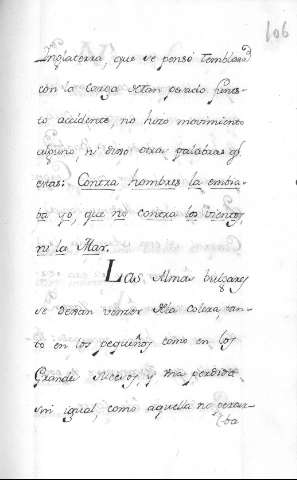 106
Inglaterra, que se pensó temblara
con la carga de tan pesado funes-
to accidente, no hizo movimiento
alguno, ni dixo otras palabras q.
estas: Contra hombres la embia-
ba yo, que no contra los vientos,
ni la Mar.
Las Almas bulgares
se dexan vencer de la colera, tan-
to en los pequeños como en los
Grandes sucesos, y una perdida
sin igual, como aquella no pertur-
ba